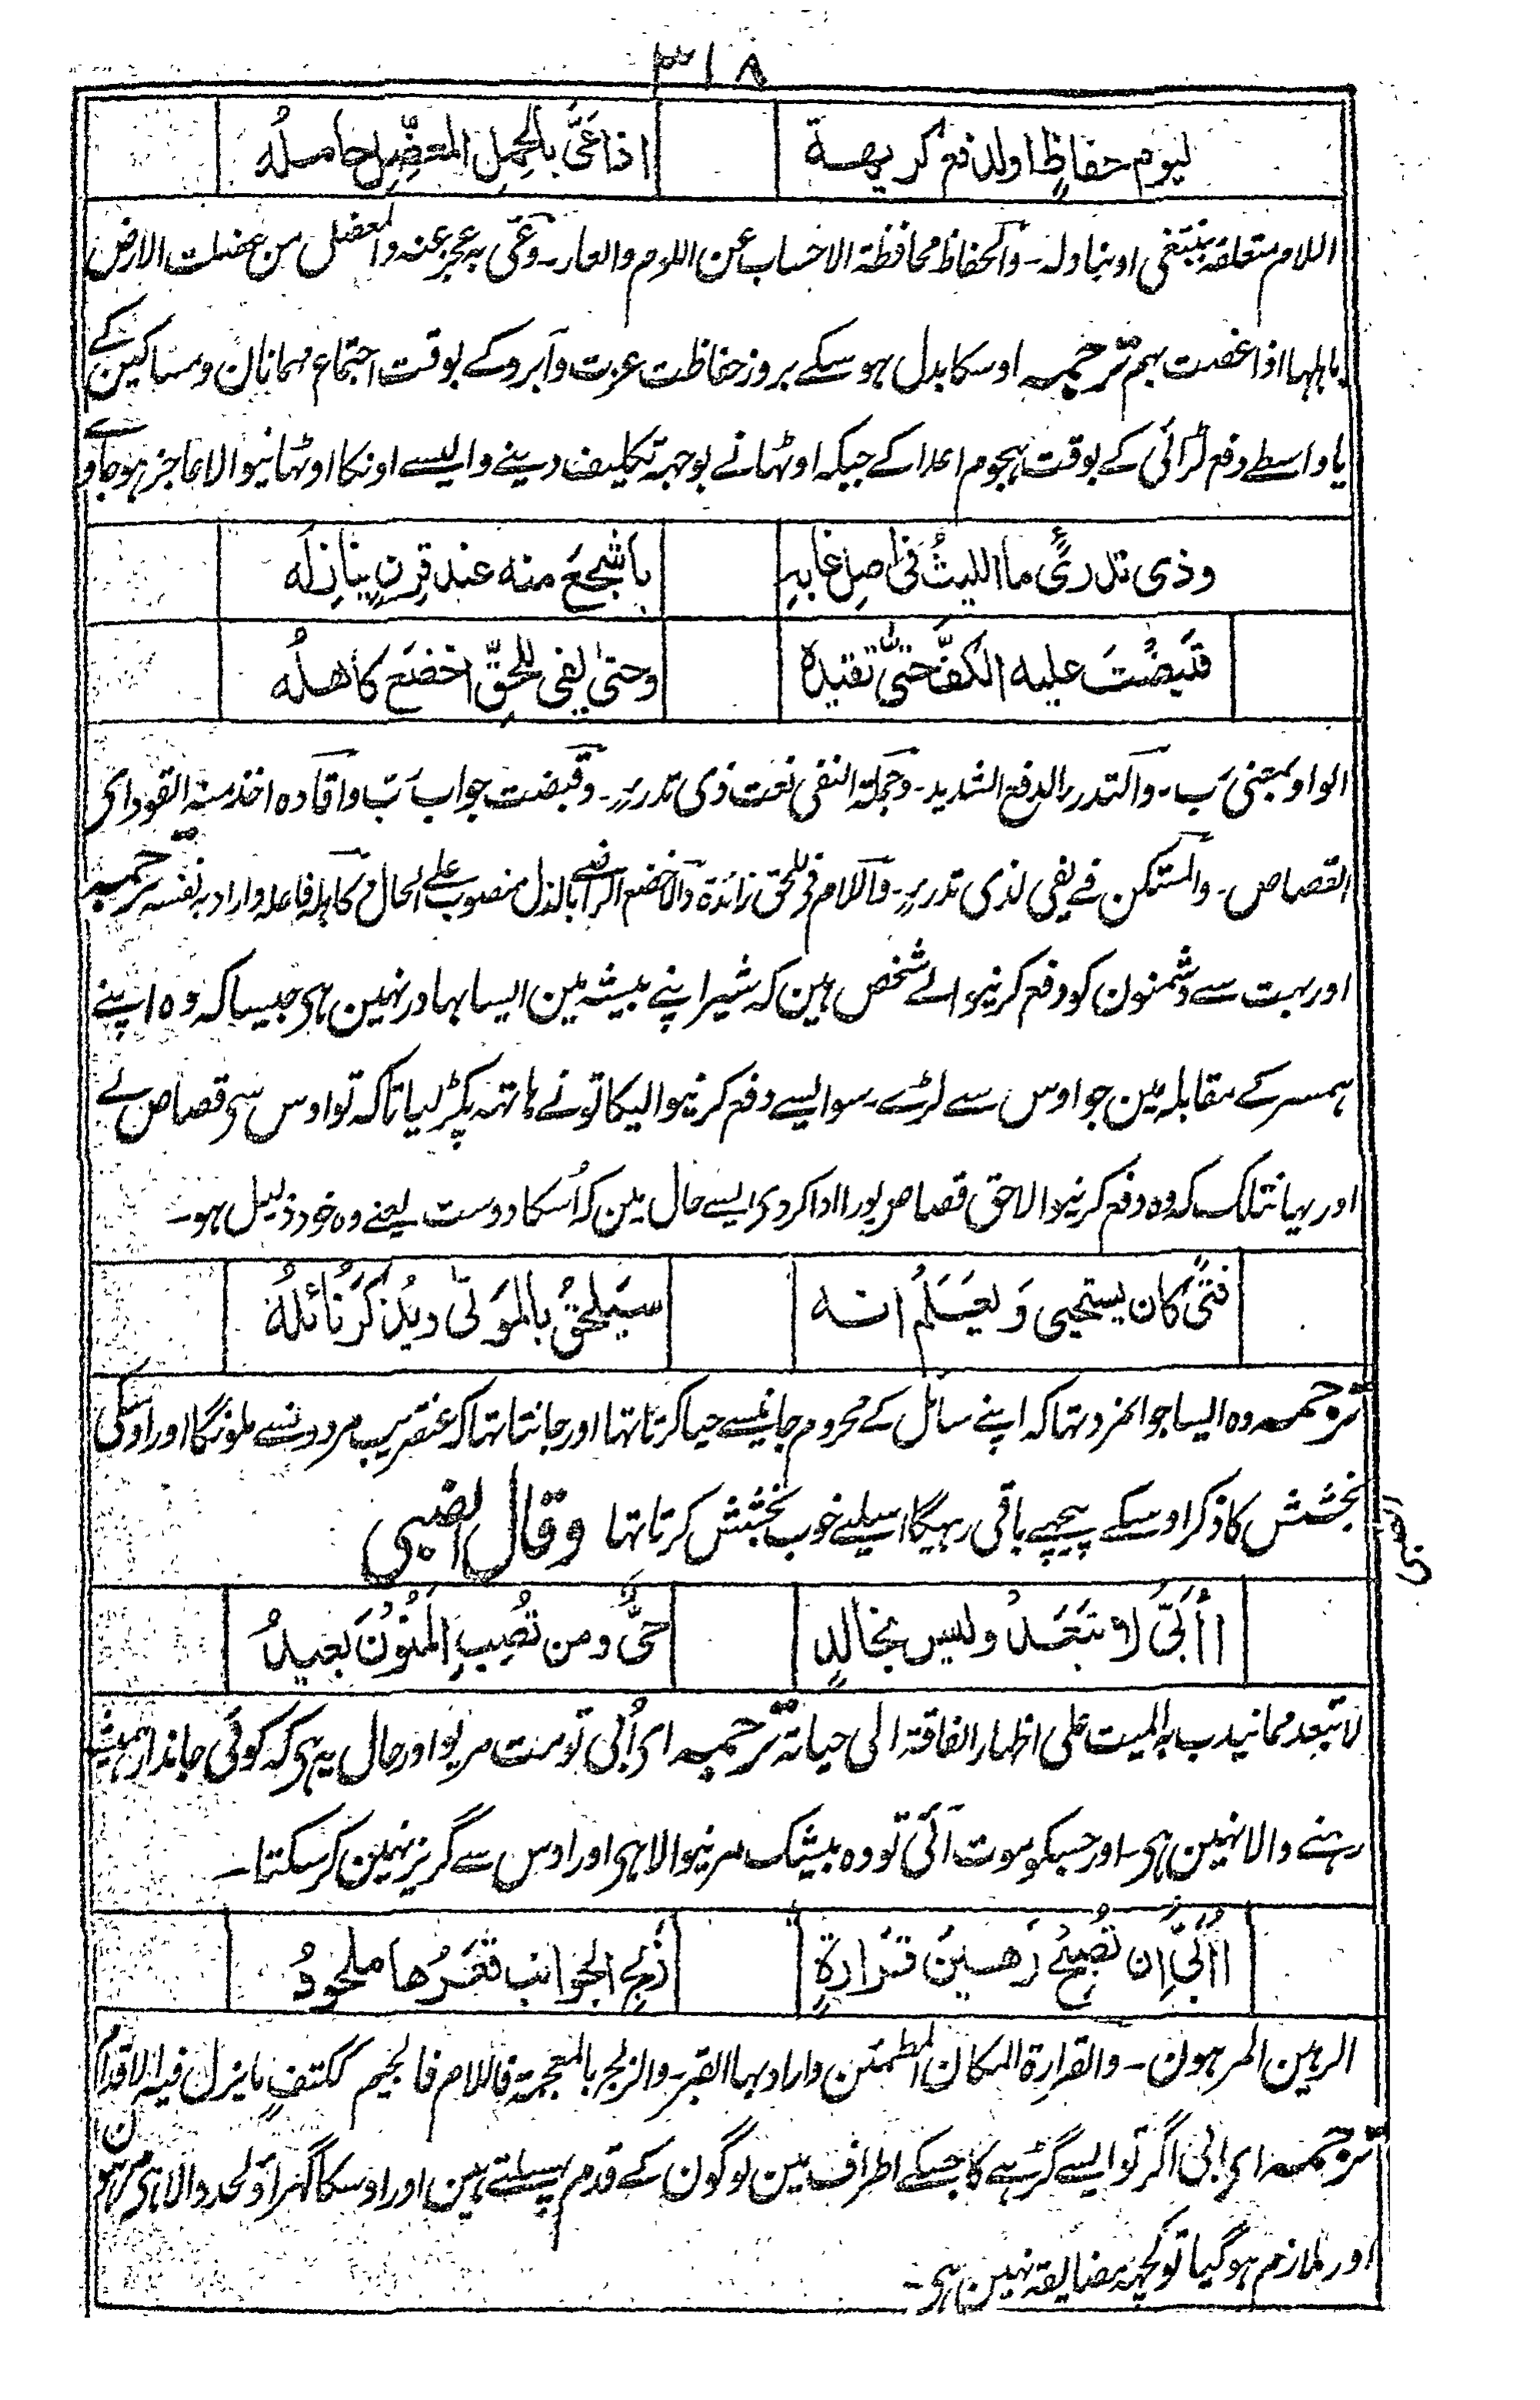 ٣١٨
ليوم حفاظٍ اولدفع كريهة اذا عَىَّ بالحِملِ المعضِّلِ حاملُه
اللام متعلقة بینبغی او بناوله۔ والحفاظ محافظة الاحساب عن اللوم والعار۔ وعیّ به عجز عنه والمعضل من عضلت الارض
باهلها اذا غصت بهم ترجمہ اوسکا بدل ہوسکے بروز حفاظت عزت وآبرو کے بوقت اجتماع مہمانان ومساکین کے
یا واسطے دفع لڑائی کے بوقت ہجوم اعدا کے جبکہ اوٹھانے بوجہہ تکلیف دینے والیسے اونکا اوٹھانیوالا عاجز ہو جاوے
وذى تدرىءٍ ما الليثُ فى اصلِ غابهِ باشجعَ منه عند قِرنٍ ينازِلُه
قبضْتَ عليه الكفَّ حتىّٰ تقيدَه وحتىٰ يفى للحقِّ اخضَعَ كاهلُه
الواو بمعنی رُبَ۔ والتدرء الدفع الشدید۔ وجملة النفی نعت ذی تدرء۔ وقبضت جواب رُبّ واقاده اخذ منه القود ای
القصاص۔ والمستکن فے یفی لذی تدرء۔ واللام فی للحق زائدة والاخضع الراضے بالذل منصوب علے الحال وکاہلہ فاعلہ واراد به نفسه ترجمہ
اور بہت سے دشمنون کو دفع کرنیوالے شخص ہین کہ شیر اپنے بیشہ مین ایسا بہادر نہین ہی جیسا کہ وہ اپنے
ہمسر کے مقابلہ مین جو اوس سے لڑے۔ سو ایسے دفع کرنیوالیکا تونے ہاتہہ پکڑ لیا تاکہ تو اوس سی قصاص لے
اور یہانتلک کہ وہ دفع کرنیوالا حق قصاص پورا ادا کردی ایسے حال مین کہ اُسکا دوست یعنے وہ خود ذلیل ہو۔
فتىً كان يستحيى وَيعْلَمُ انه سيَلحقُ بالمَوتىٰ ويُذكَرُ نائلُهْ
ترجمہ وہ ایسا جوانمرد تہا کہ اپنے سائل کے محروم جانیسے حیا کرتا تہا اور جانتا تہا کہ عنقریب مردونسے ملونگا اور اوسکی
بخشش کا ذکر اوسکے پیچہے باقی رہیگا اسیلیے خوب بخشش کرتا تہا وقال الضبى
أأُبَىُّ لا تبعَدْ وليس بخالدٍ حىٌّ ومن تُصِبِ المَنُوْنُ بَعيدُ
لا تبعد مما یندب به المیت علی اظہار الفاقة الی حیاته ترجمہ ای اُبی تو مت مریو اور حال یہ ہی کہ کوئی جاندار ہمیشہ
رہنے والا نہین ہی۔ اور جسکو موت آئی تو وہ بیشک مرنیوالا ہی اور اوس سے گریز نہین کرسکتا۔
أأُبَىُّ اِن تُصبِحْ رَهينَ قَرارةٍ زَلجِ الجوانبِ قعرُها ملحودُ
الرہین المرہون۔ والقرارة المکان المطمئن واراد بہا القبر۔ والزلج بالمعجمة فاللام فالجیم ککتفٍ ما یزل فیه الاقدام
ترجمہ ای ابی اگر تو ایسے گڑہے کا جسکے اطراف مین لوگون کے قدم پہسلتے ہین اور اوسکا گہراؤ لحد والا ہی مرہون
اور ملازم ہوگیا تو کچہہ مضایقہ نہین ہی۔